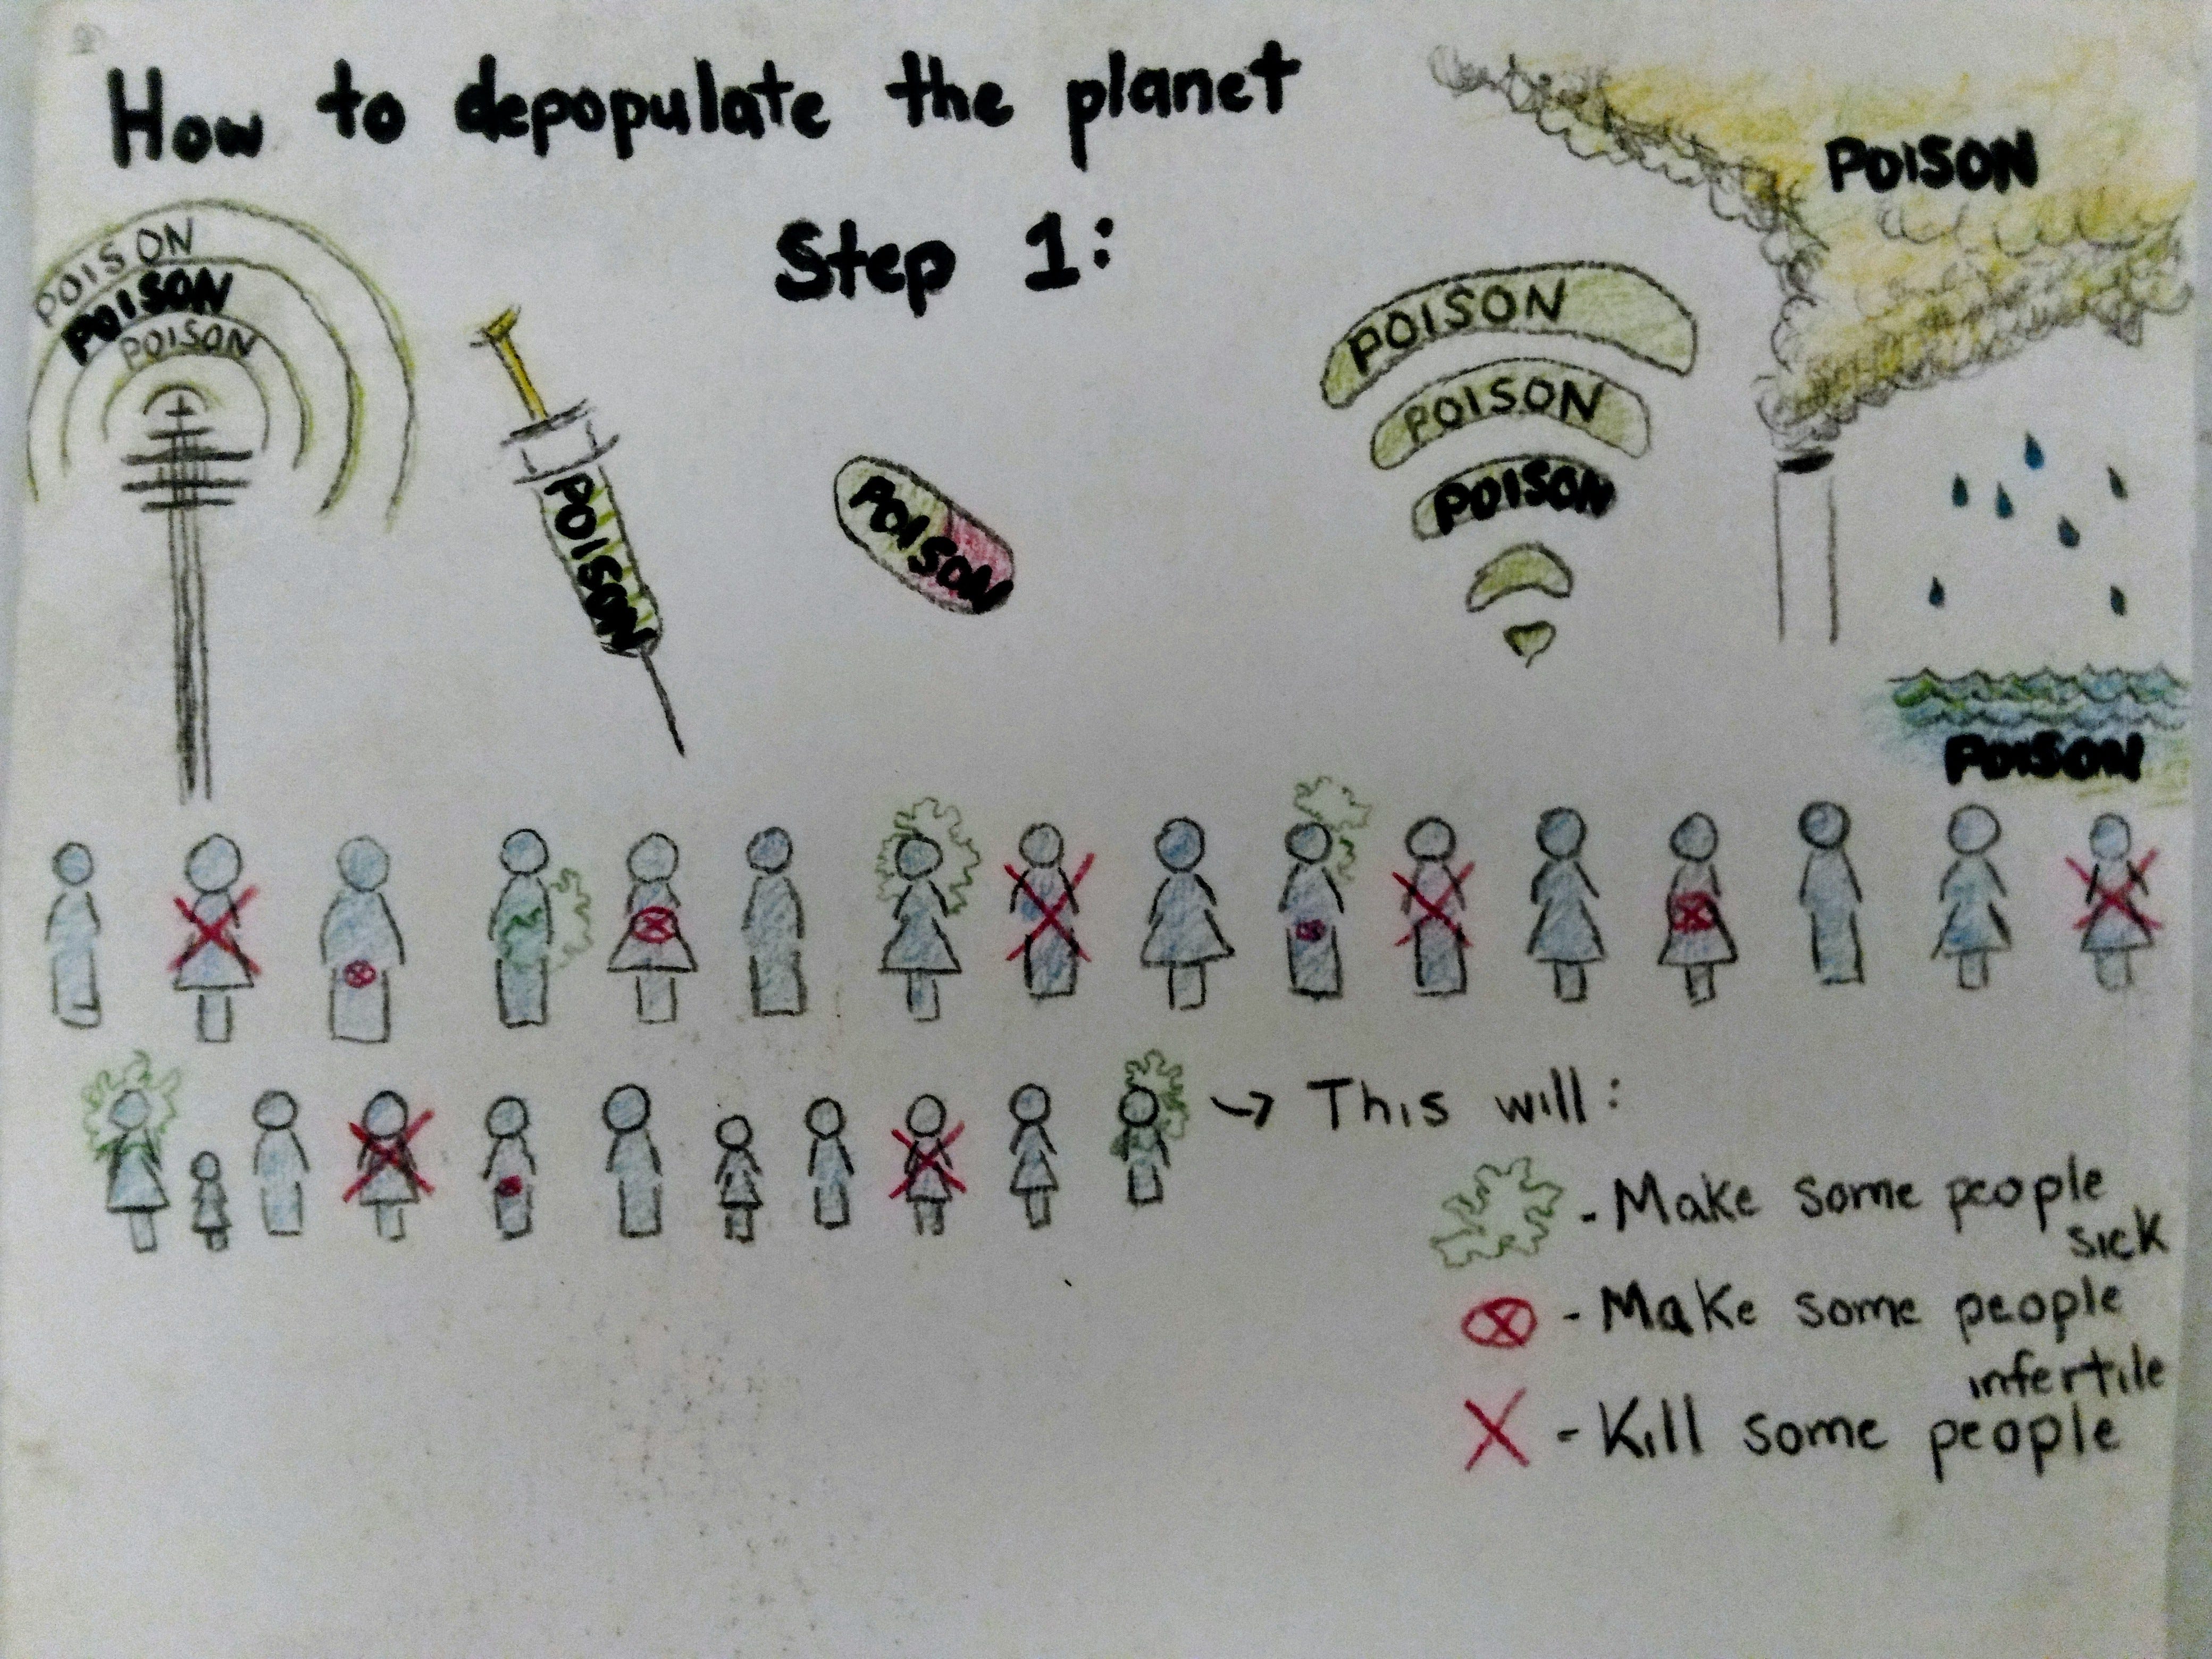 How to depopulate the planet
Step 1:
POISON
POISON
POISON
POISON
POISON
POISON
POISON
POISON
POISON
POISON
→ This will:
- Make some people
sick
- Make some people
infertile
- Kill some people